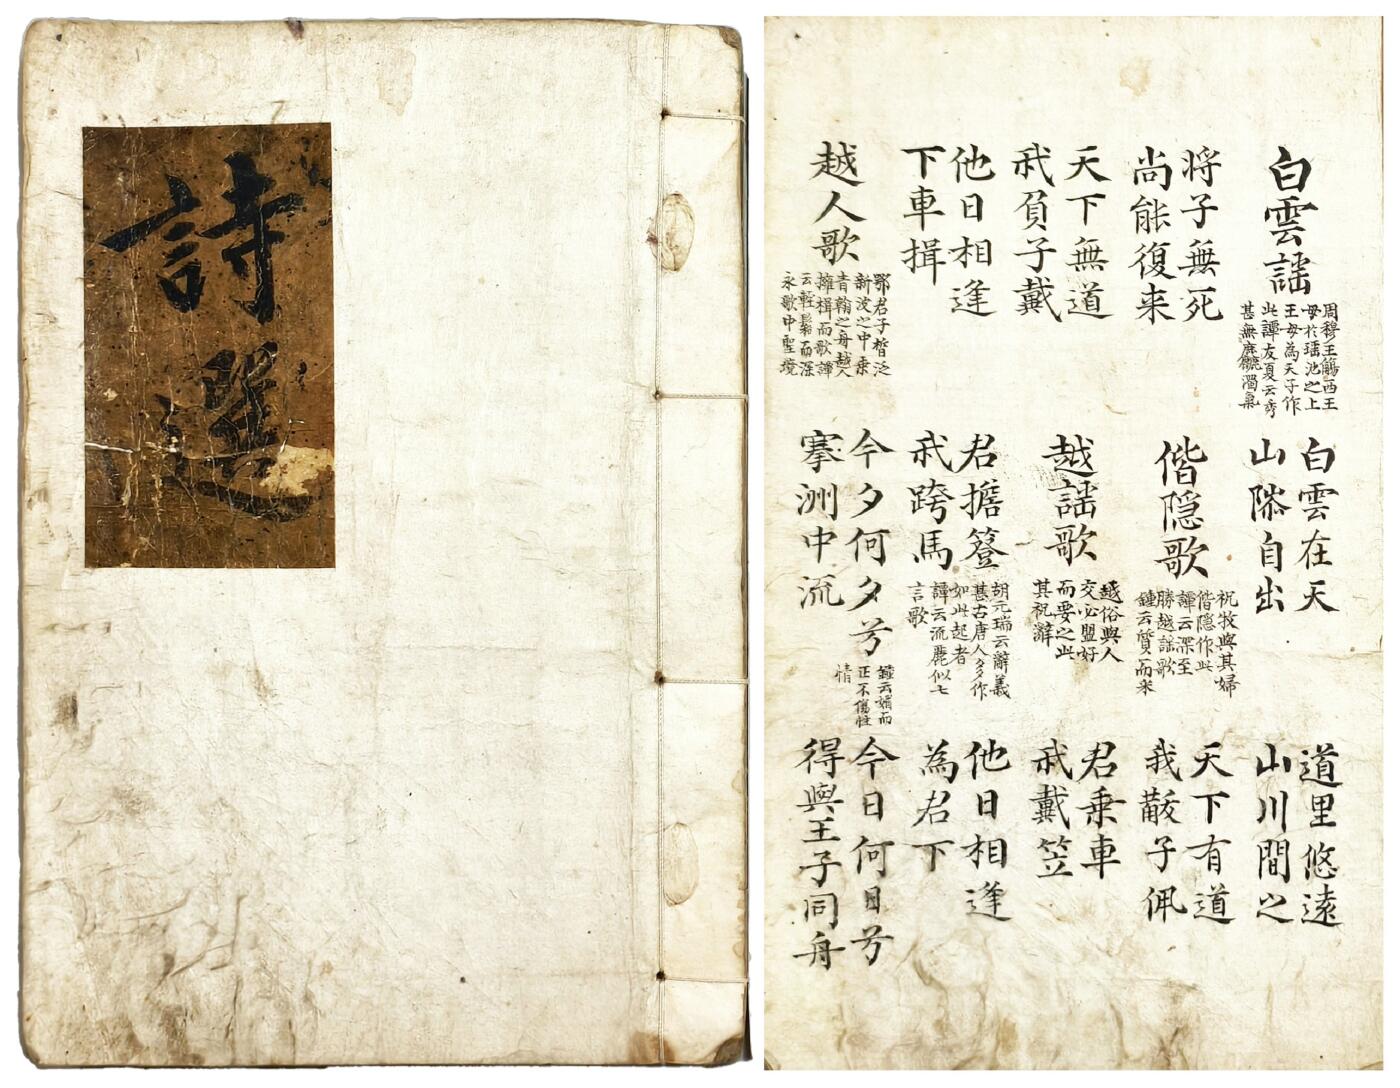 詩選
白雲謠
周穆王觴西王
母於瑤池之上
王母為天子作
此譚友夏云秀
甚無麤濁氣
白雲在天
山隙自出
道里悠遠
山川間之
将子無死
尚能復来
偕隐歌
祝牧與其婦
偕隐作此
譚云深至
勝越謠歌
鍾云質而采
天下有道
我黻子佩
天下無道
我負子戴
越謠歌
越俗與人
交必盟好
而要之此
其祝辭
君乗車
我戴笠
他日相逢
下車揖
君擔簦
我跨馬
胡元瑞云辭義
甚古唐人多作
如此起者
譚云流麗似七
言歌
他日相逢
為君下
越人歌
鄂君子晳泛
新波之中乗
青翰之舟越人
擁楫而歌譚
云輕鬆而深
永歌中聖境
今夕何夕兮
搴洲中流
鍾云媚而
正不傷性
情
今日何日兮
得與王子同舟